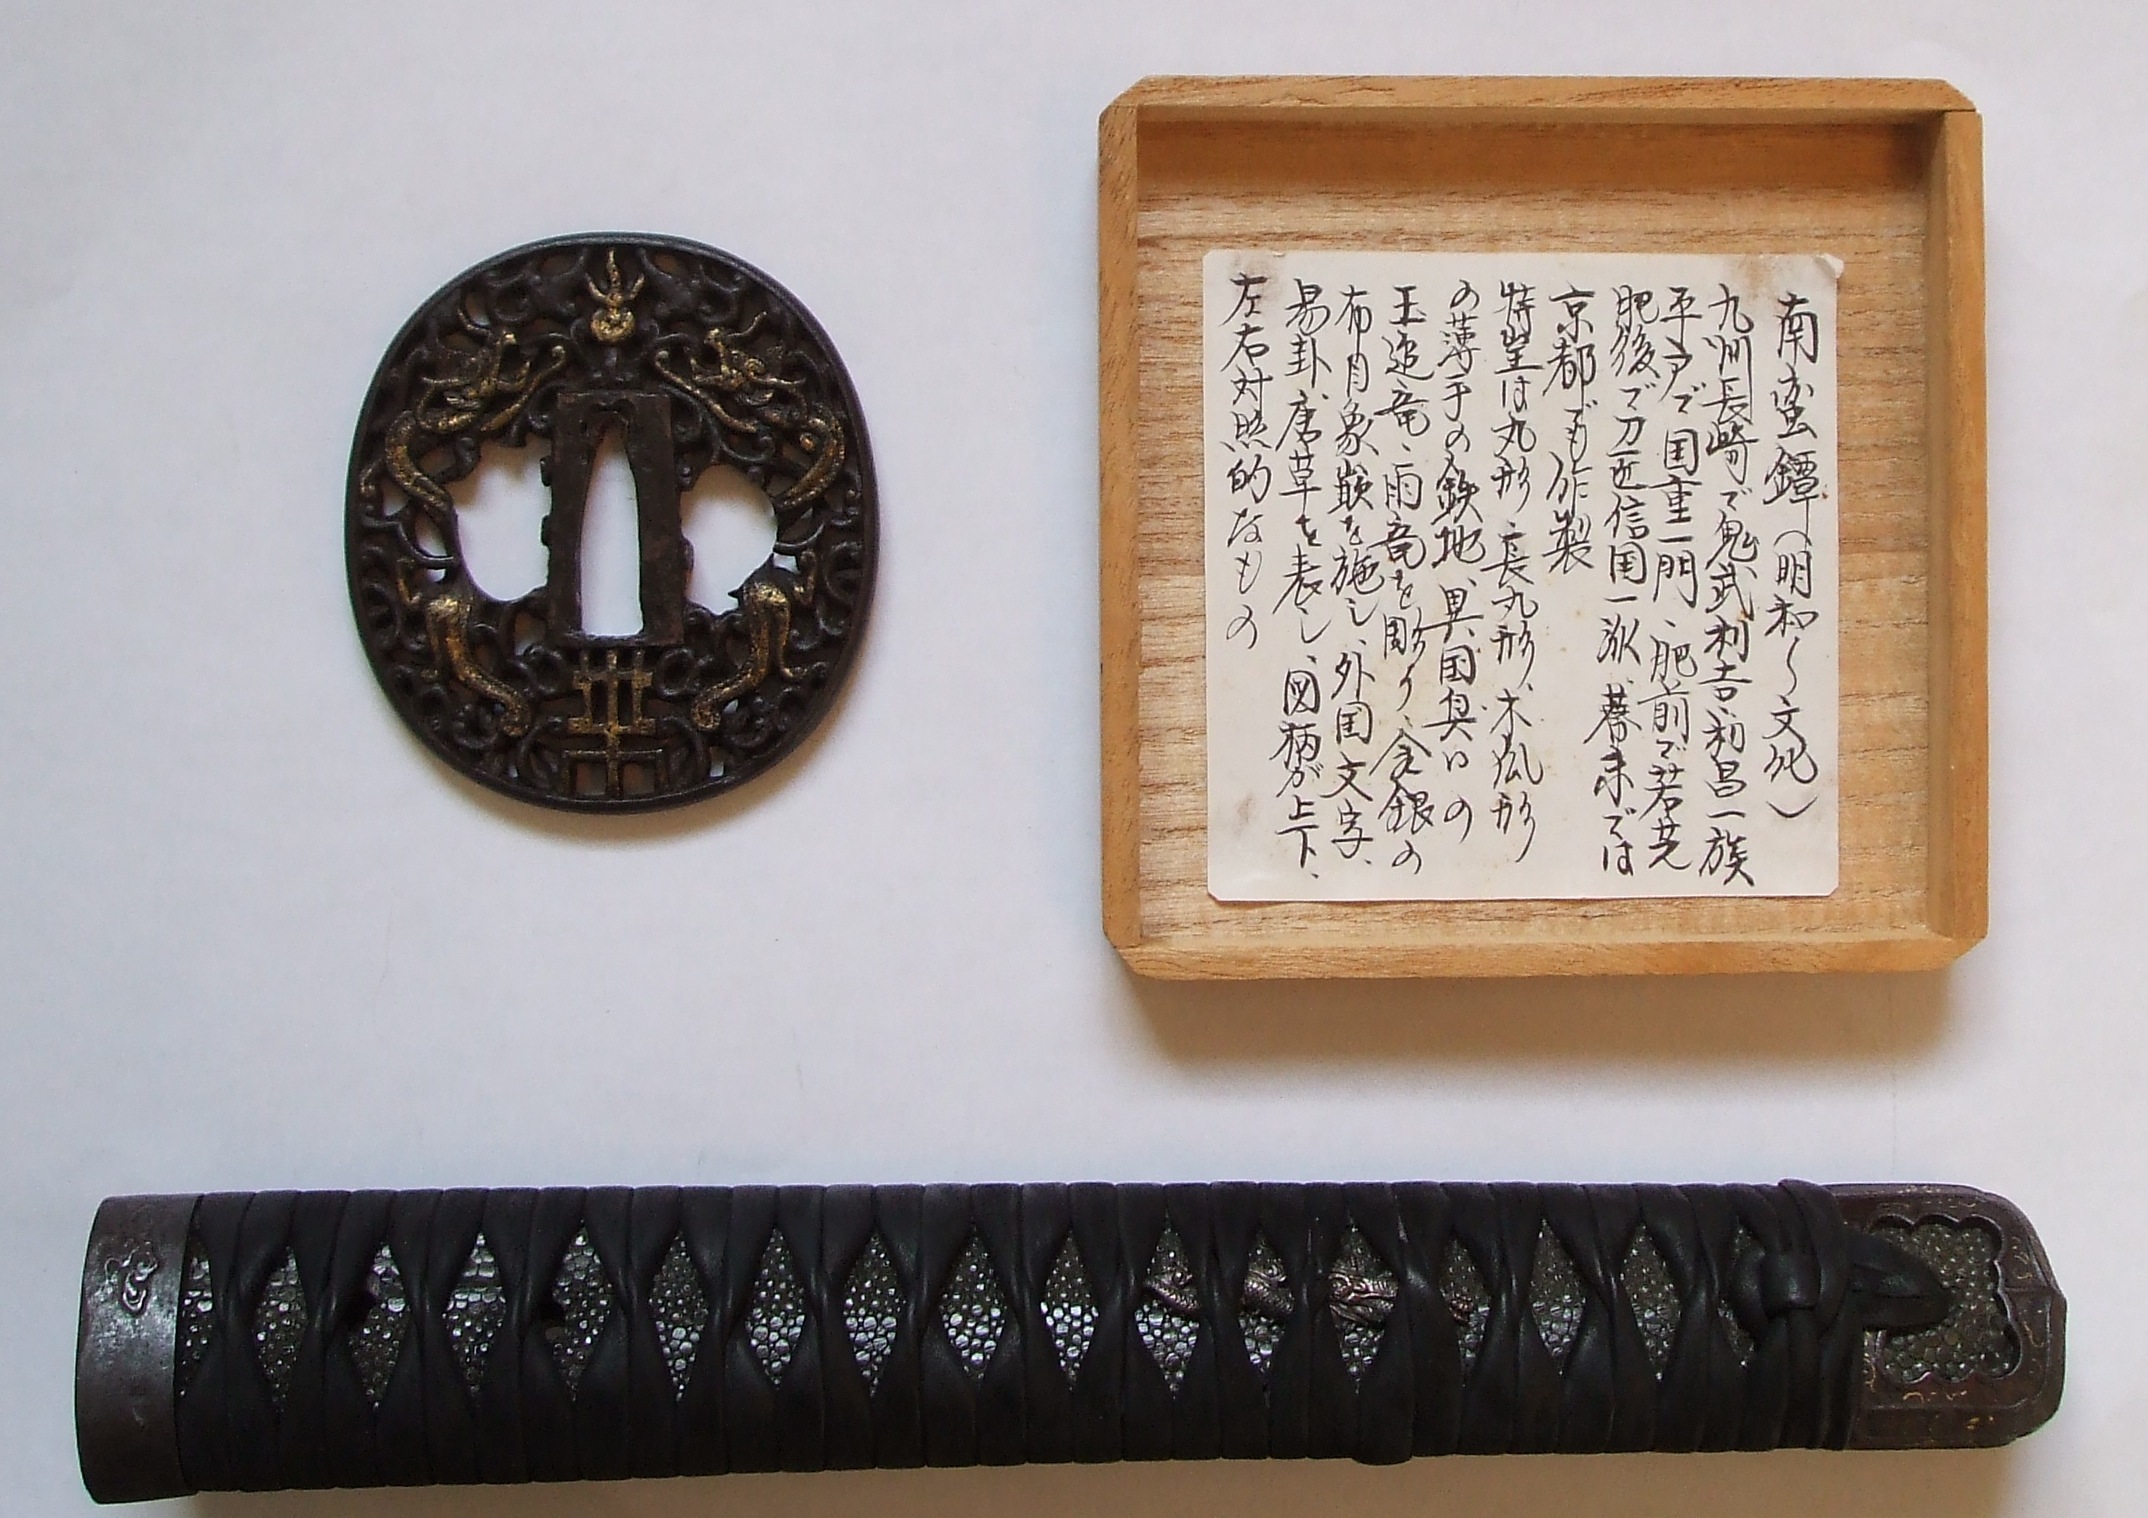 南蛮鐔(明和〜文化)
九州長崎で鬼武利吉、利昌一族
平戸で国重一門、肥前で若芝
肥後で刀匠信国一派、幕末では
京都でも作製
特望は丸形、長丸形、木瓜形
の薄手の鉄地、異国臭いの
玉追竜、雨竜を彫り、金銀の
布目象嵌を施し、外国文字、
易卦、唐草を表し、図柄が上下、
左右対照的なもの